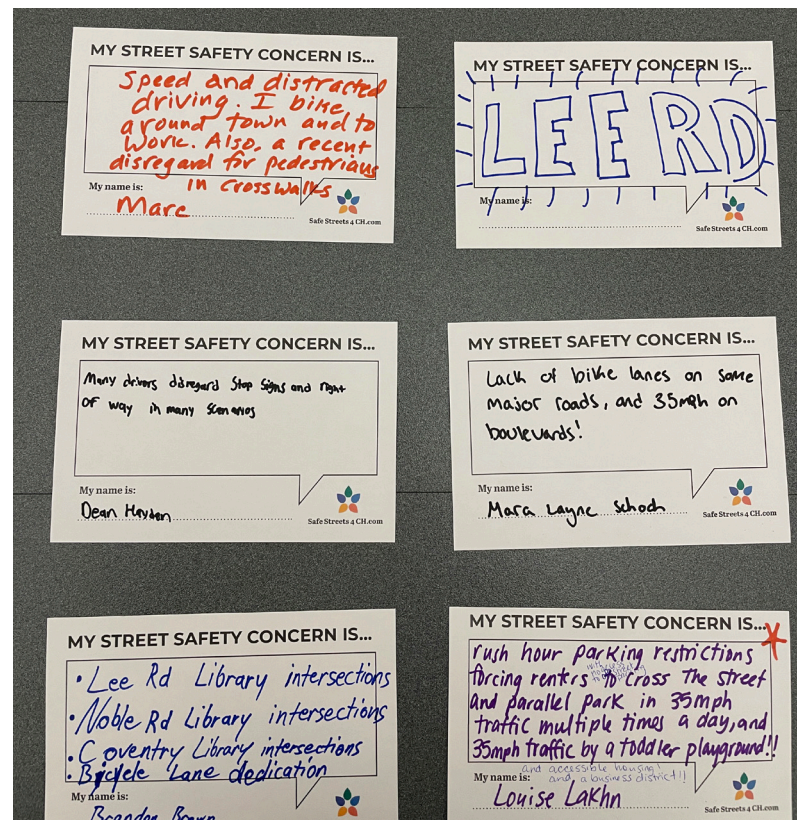 MY STREET SAFETY CONCERN IS...
Speed and distracted
driving. I bike
around town and to
work. Also, a recent
disregard for pedestrians
in crosswalks
My name is:
Marc
Safe Streets 4 CH.com
MY STREET SAFETY CONCERN IS...
LEE RD
My name is:
Safe Streets 4 CH.com
MY STREET SAFETY CONCERN IS...
Many drivers disregard Stop Signs and right
of way in many scenarios
My name is:
Dean Hayden
Safe Streets 4 CH.com
MY STREET SAFETY CONCERN IS...
Lack of bike lanes on some
major roads, and 35mph on
boulevards!
My name is:
Mara Layne Schoch
Safe Streets 4 CH.com
MY STREET SAFETY CONCERN IS...
• Lee Rd Library intersections
• Noble Rd Library intersections
• Coventry Library intersections
• Bicycle Lane dedication
My name is:
Brandon Brown
MY STREET SAFETY CONCERN IS...
rush hour parking restrictions
forcing renters to cross the street
and parallel park in 35mph
traffic multiple times a day, and
35mph traffic by a toddler playground!!
and accessible housing!
and a business district!!
My name is:
Louise Lakhn
Safe Streets 4 CH.com